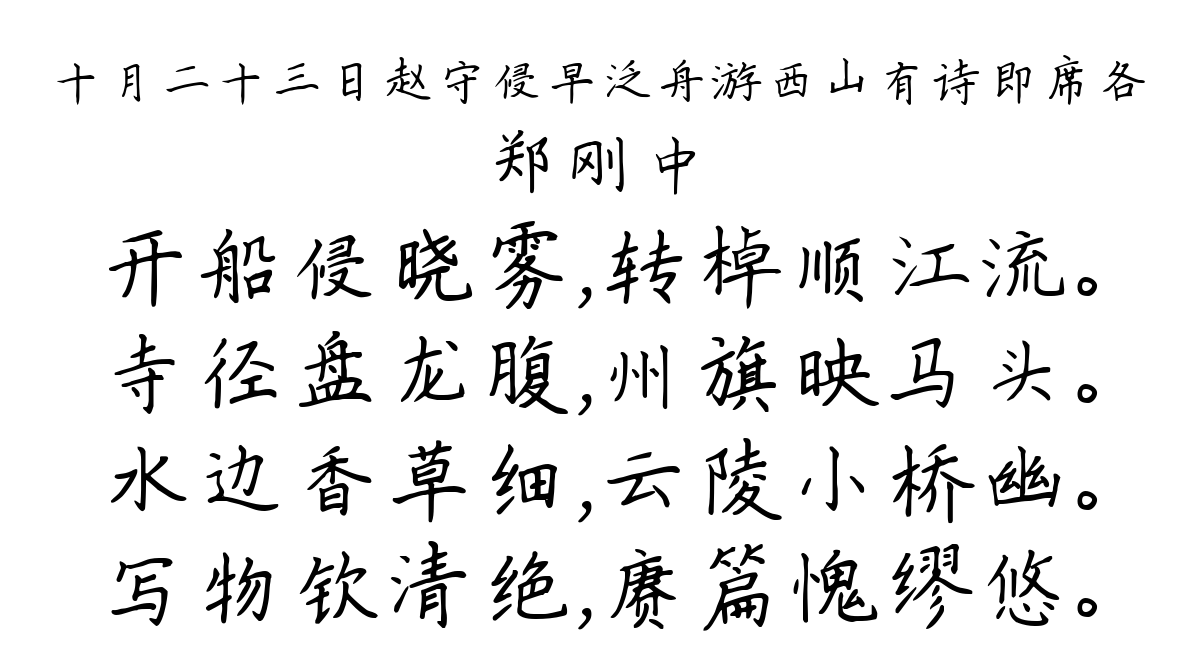 十月二十三日赵守侵早泛舟游西山有诗即席各
郑刚中
开船侵晓雾,转棹顺江流。
寺径盘龙腹,州旗映马头。
水边香草细,云陵小桥幽。
写物钦清绝,赓篇愧缪悠。